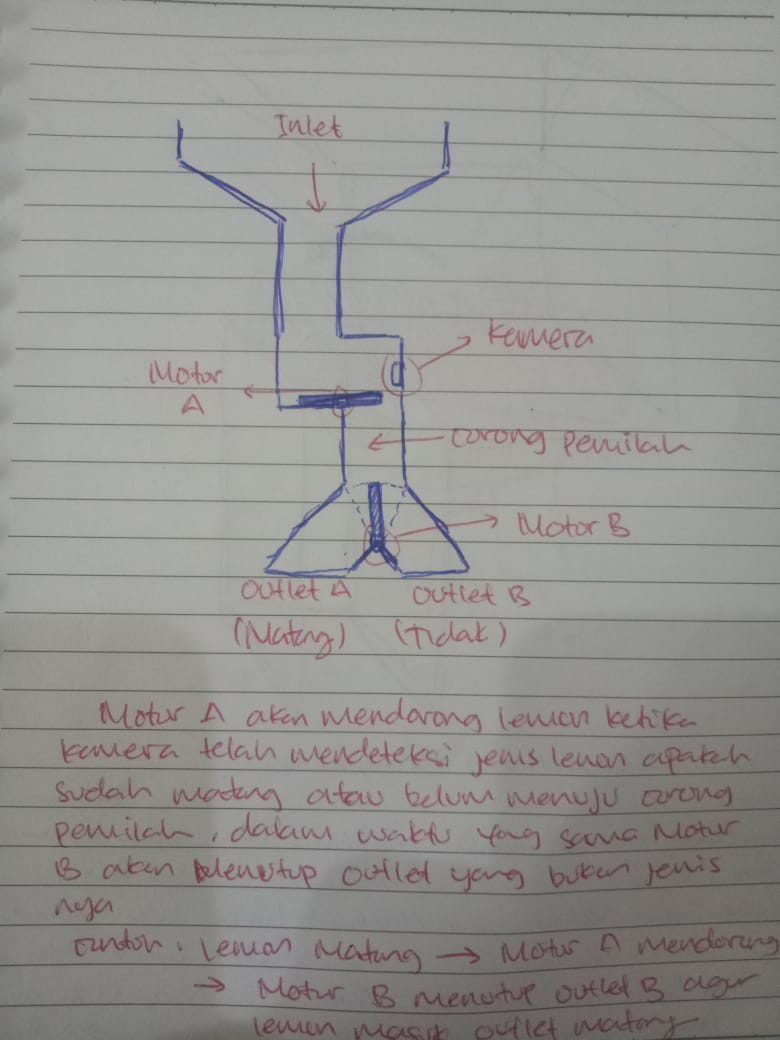 Inlet
Kamera
Motor
A
corong pemilah
Motor B
Outlet A
Outlet B
(Matang)
(Tidak)
Motor A akan mendorong lemon ketika
kamera telah mendeteksi jenis lemon apakah
sudah matang atau belum menuju corong
pemilah, dalam waktu yang sama Motor
B akan Menutup outlet yang bukan jenis
nya
Contoh : Lemon Matang → Motor A mendorong
→ Motor B menutup outlet B agar
lemon masuk outlet matang